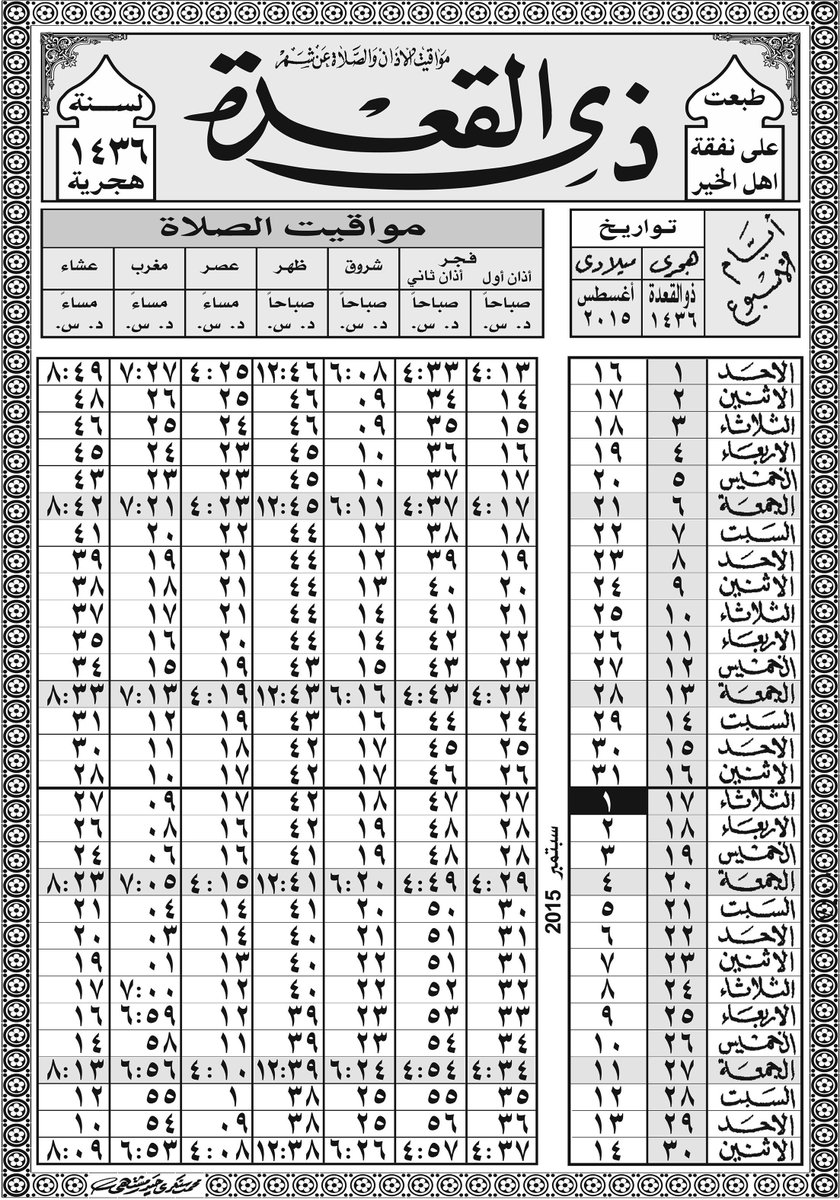 مواقيت الاذان والصلاة عن شهر
ذي القعدة
طبعت
على نفقة
اهل الخير
لسنة
١٤٣٦
هجرية
أيام الأسبوع
تواريخ
هجري ميلادي
ذوالقعدة ١٤٣٦ أغسطس ٢٠١٥
مواقيت الصلاة
فجر شروق ظهر عصر مغرب عشاء
أذان أول أذان ثاني
صباحاً صباحاً صباحاً صباحاً مساءً مساءً مساءً
د. س. د. س. د. س. د. س. د. س. د. س. د. س.
الاحد ١ ١٦ ٤:١٣ ٤:٣٣ ٦:٠٨ ١٢:٤٦ ٤:٢٥ ٧:٢٧ ٨:٤٩
الاثنين ٢ ١٧ ١٤ ٣٤ ٠٩ ٤٦ ٢٥ ٢٦ ٤٨
الثلاثاء ٣ ١٨ ١٥ ٣٥ ٠٩ ٤٦ ٢٤ ٢٥ ٤٦
الاربعاء ٤ ١٩ ١٦ ٣٦ ١٠ ٤٥ ٢٣ ٢٤ ٤٥
الخميس ٥ ٢٠ ١٧ ٣٧ ١٠ ٤٥ ٢٣ ٢٣ ٤٣
الجمعة ٦ ٢١ ٤:١٧ ٤:٣٧ ٦:١١ ١٢:٤٥ ٤:٢٣ ٧:٢١ ٨:٤٢
السبت ٧ ٢٢ ١٨ ٣٨ ١٢ ٤٤ ٢٢ ٢٠ ٤١
الاحد ٨ ٢٣ ١٩ ٣٩ ١٢ ٤٤ ٢١ ١٩ ٣٩
الاثنين ٩ ٢٤ ٢٠ ٤٠ ١٣ ٤٤ ٢١ ١٨ ٣٨
الثلاثاء ١٠ ٢٥ ٢١ ٤١ ١٤ ٤٤ ٢١ ١٧ ٣٧
الاربعاء ١١ ٢٦ ٢٢ ٤٢ ١٤ ٤٤ ٢٠ ١٦ ٣٥
الخميس ١٢ ٢٧ ٢٣ ٤٣ ١٥ ٤٣ ١٩ ١٥ ٣٤
الجمعة ١٣ ٢٨ ٤:٢٣ ٤:٤٣ ٦:١٦ ١٢:٤٣ ٤:١٩ ٧:١٣ ٨:٣٣
السبت ١٤ ٢٩ ٢٤ ٤٤ ١٦ ٤٣ ١٩ ١٢ ٣١
الاحد ١٥ ٣٠ ٢٥ ٤٥ ١٧ ٤٢ ١٨ ١١ ٣٠
الاثنين ١٦ ٣١ ٢٦ ٤٦ ١٧ ٤٢ ١٧ ١٠ ٢٨
الثلاثاء ١٧ ١ ٢٧ ٤٧ ١٨ ٤٢ ١٧ ٠٩ ٢٧
الاربعاء ١٨ ٢ ٢٨ ٤٨ ١٩ ٤٢ ١٦ ٠٨ ٢٦
الخميس ١٩ ٣ ٢٨ ٤٨ ١٩ ٤١ ١٦ ٠٦ ٢٤
الجمعة ٢٠ ٤ ٤:٢٩ ٤:٤٩ ٦:٢٠ ١٢:٤١ ٤:١٥ ٧:٠٥ ٨:٢٣
السبت ٢١ ٥ ٣٠ ٥٠ ٢٠ ٤١ ١٤ ٠٤ ٢١
الاحد ٢٢ ٦ ٣١ ٥١ ٢١ ٤٠ ١٤ ٠٣ ٢٠
الاثنين ٢٣ ٧ ٣١ ٥١ ٢٢ ٤٠ ١٣ ٠١ ١٩
الثلاثاء ٢٤ ٨ ٣٢ ٥٢ ٢٢ ٤٠ ١٢ ٧:٠٠ ١٧
الاربعاء ٢٥ ٩ ٣٣ ٥٣ ٢٣ ٣٩ ١٢ ٦:٥٩ ١٦
الخميس ٢٦ ١٠ ٣٤ ٥٤ ٢٣ ٣٩ ١١ ٥٨ ١٤
الجمعة ٢٧ ١١ ٤:٣٤ ٤:٥٤ ٦:٢٤ ١٢:٣٩ ٤:١٠ ٦:٥٦ ٨:١٣
السبت ٢٨ ١٢ ٣٥ ٥٥ ٢٥ ٣٨ ١ ٥٥ ١٢
الاحد ٢٩ ١٣ ٣٦ ٥٦ ٢٥ ٣٨ ٠٩ ٥٤ ١٠
الاثنين ٣٠ ١٤ ٤:٣٧ ٤:٥٧ ٦:٢٦ ١٢:٣٨ ٤:٠٨ ٦:٥٣ ٨:٠٩
سبتمبر 2015